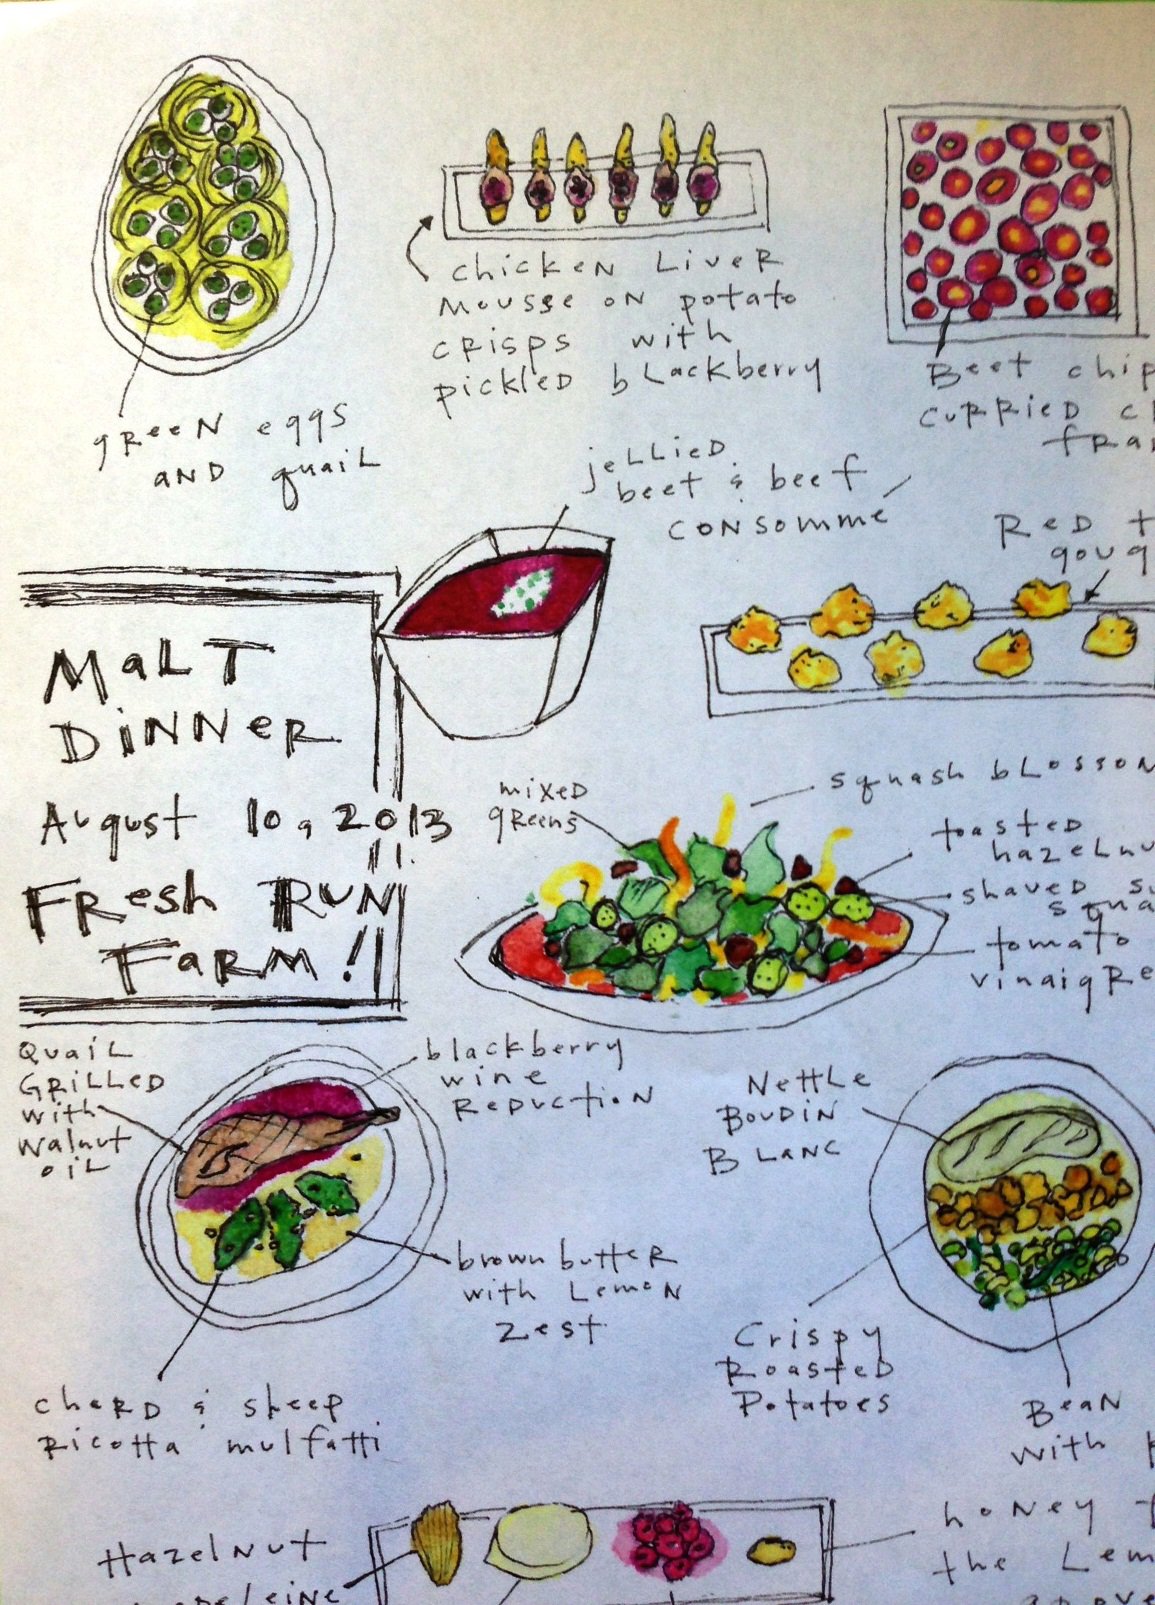 green eggs
and quail
chicken liver
mousse on potato
crisps with
pickled blackberry
Beet chip
curried
jellied
beet & beef
consommé
Red
MaLT
DiNNeR
August 10, 2013
Fresh Run
Farm!
mixed
greens
squash blossom
toasted
shaved
tomato
Quail
Grilled
with
walnut
oil
blackberry
wine
reduction
brown butter
with lemon
zest
chard & sheep
ricotta mulfatti
Nettle
Boudin
Blanc
Crispy
Roasted
Potatoes
Bean
with
Hazelnut
honey
the Lem